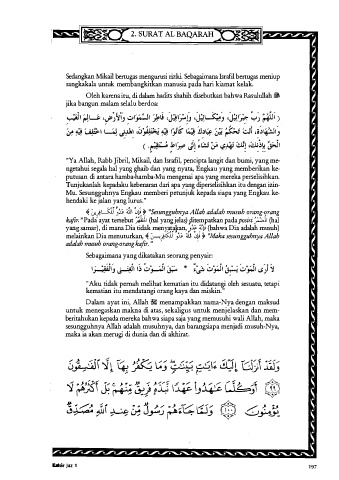 2. SURAT AL BAQARAH
Sedangkan Mikail bertugas mengurusi rizki. Sebagaimana Israfil bertugas meniup
sangkakala untuk membangkitkan manusia pada hari kiamat kelak.
Oleh karena itu, di dalam hadits shahih disebutkan bahwa Rasulullah ﷺ
jika bangun malam selalu berdoa:
( اَللَّهُمَّ رَبَّ جِبْرَائِيْلَ، وَمِيْكَائِيْلَ، وَإِسْرَافِيْلَ، فَاطِرَ السَّمَوَاتِ وَالْأَرْضِ، عَالِمَ الْغَيْبِ
وَالشَّهَادَةِ، أَنْتَ تَحْكُمُ بَيْنَ عِبَادِكَ فِيْمَا كَانُوْا فِيْهِ يَخْتَلِفُوْنَ، اهْدِنِي لِمَا اخْتُلِفَ فِيْهِ مِنَ
الْحَقِّ بِإِذْنِكَ، إِنَّكَ تَهْدِي مَنْ تَشَاءُ إِلَى صِرَاطٍ مُسْتَقِيْمٍ. )
"Ya Allah, Rabb Jibril, Mikail, dan Israfil, pencipta langit dan bumi, yang me-
ngetahui segala hal yang ghaib dan yang nyata, Engkau yang memberikan ke-
putusan di antara hamba-hamba-Mu mengenai apa yang mereka perselisihkan.
Tunjukanlah kepadaku kebenaran dari apa yang diperselisihkan itu dengan izin-
Mu. Sesungguhnya Engkau memberi petunjuk kepada siapa yang Engkau ke-
hendaki ke jalan yang lurus."
﴿ فَإِنَّ اللَّهَ عَدُوٌّ لِّلْكَافِرِينَ ﴾ "Sesungguhnya Allah adalah musuh orang-orang
kafir." Pada ayat tersebut (hal yang jelas) ditempatkan pada posisi (hal
yang samar), di mana Dia tidak menyatakan, (bahwa Dia adalah musuh)
melainkan Dia menuturkan, ﴿ فَإِنَّ اللَّهَ عَدُوٌّ لِّلْكَافِرِينَ ﴾ "Maka sesungguhnya Allah
adalah musuh orang-orang kafir."
Sebagaimana yang dikatakan seorang penyair:
لَا أَرَى الْمَوْتَ يَسْبِقُ الْمَوْتَ شَيْءٌ * سَبَقَ الْمَوْتُ ذَا الْغِنَى وَالْفَقِيْرَا
"Aku tidak pernah melihat kematian itu didatangi oleh sesuatu, tetapi
kematian itu mendatangi orang kaya dan miskin."
Dalam ayat ini, Allah ﷻ menampakkan nama-Nya dengan maksud
untuk menegaskan makna di atas, sekaligus untuk menjelaskan dan mem-
beritahukan kepada mereka bahwa siapa saja yang memusuhi wali Allah, maka
sesungguhnya Allah adalah musuhnya, dan barangsiapa menjadi musuh-Nya,
maka ia akan merugi di dunia dan di akhirat.
وَلَقَدْ أَنزَلْنَا إِلَيْكَ ءَايَاتٍ بَيِّنَاتٍ وَمَا يَكْفُرُ بِهَا إِلَّا الْفَاسِقُونَ
۝٩٩ أَوَكُلَّمَا عَاهَدُوا عَهْدًا نَّبَذَهُ فَرِيقٌ مِّنْهُم بَلْ أَكْثَرُهُمْ لَا
يُؤْمِنُونَ ۝١٠٠ وَلَمَّا جَاءَهُمْ رَسُولٌ مِّنْ عِندِ اللَّهِ مُصَدِّقٌ
Juz 1
197